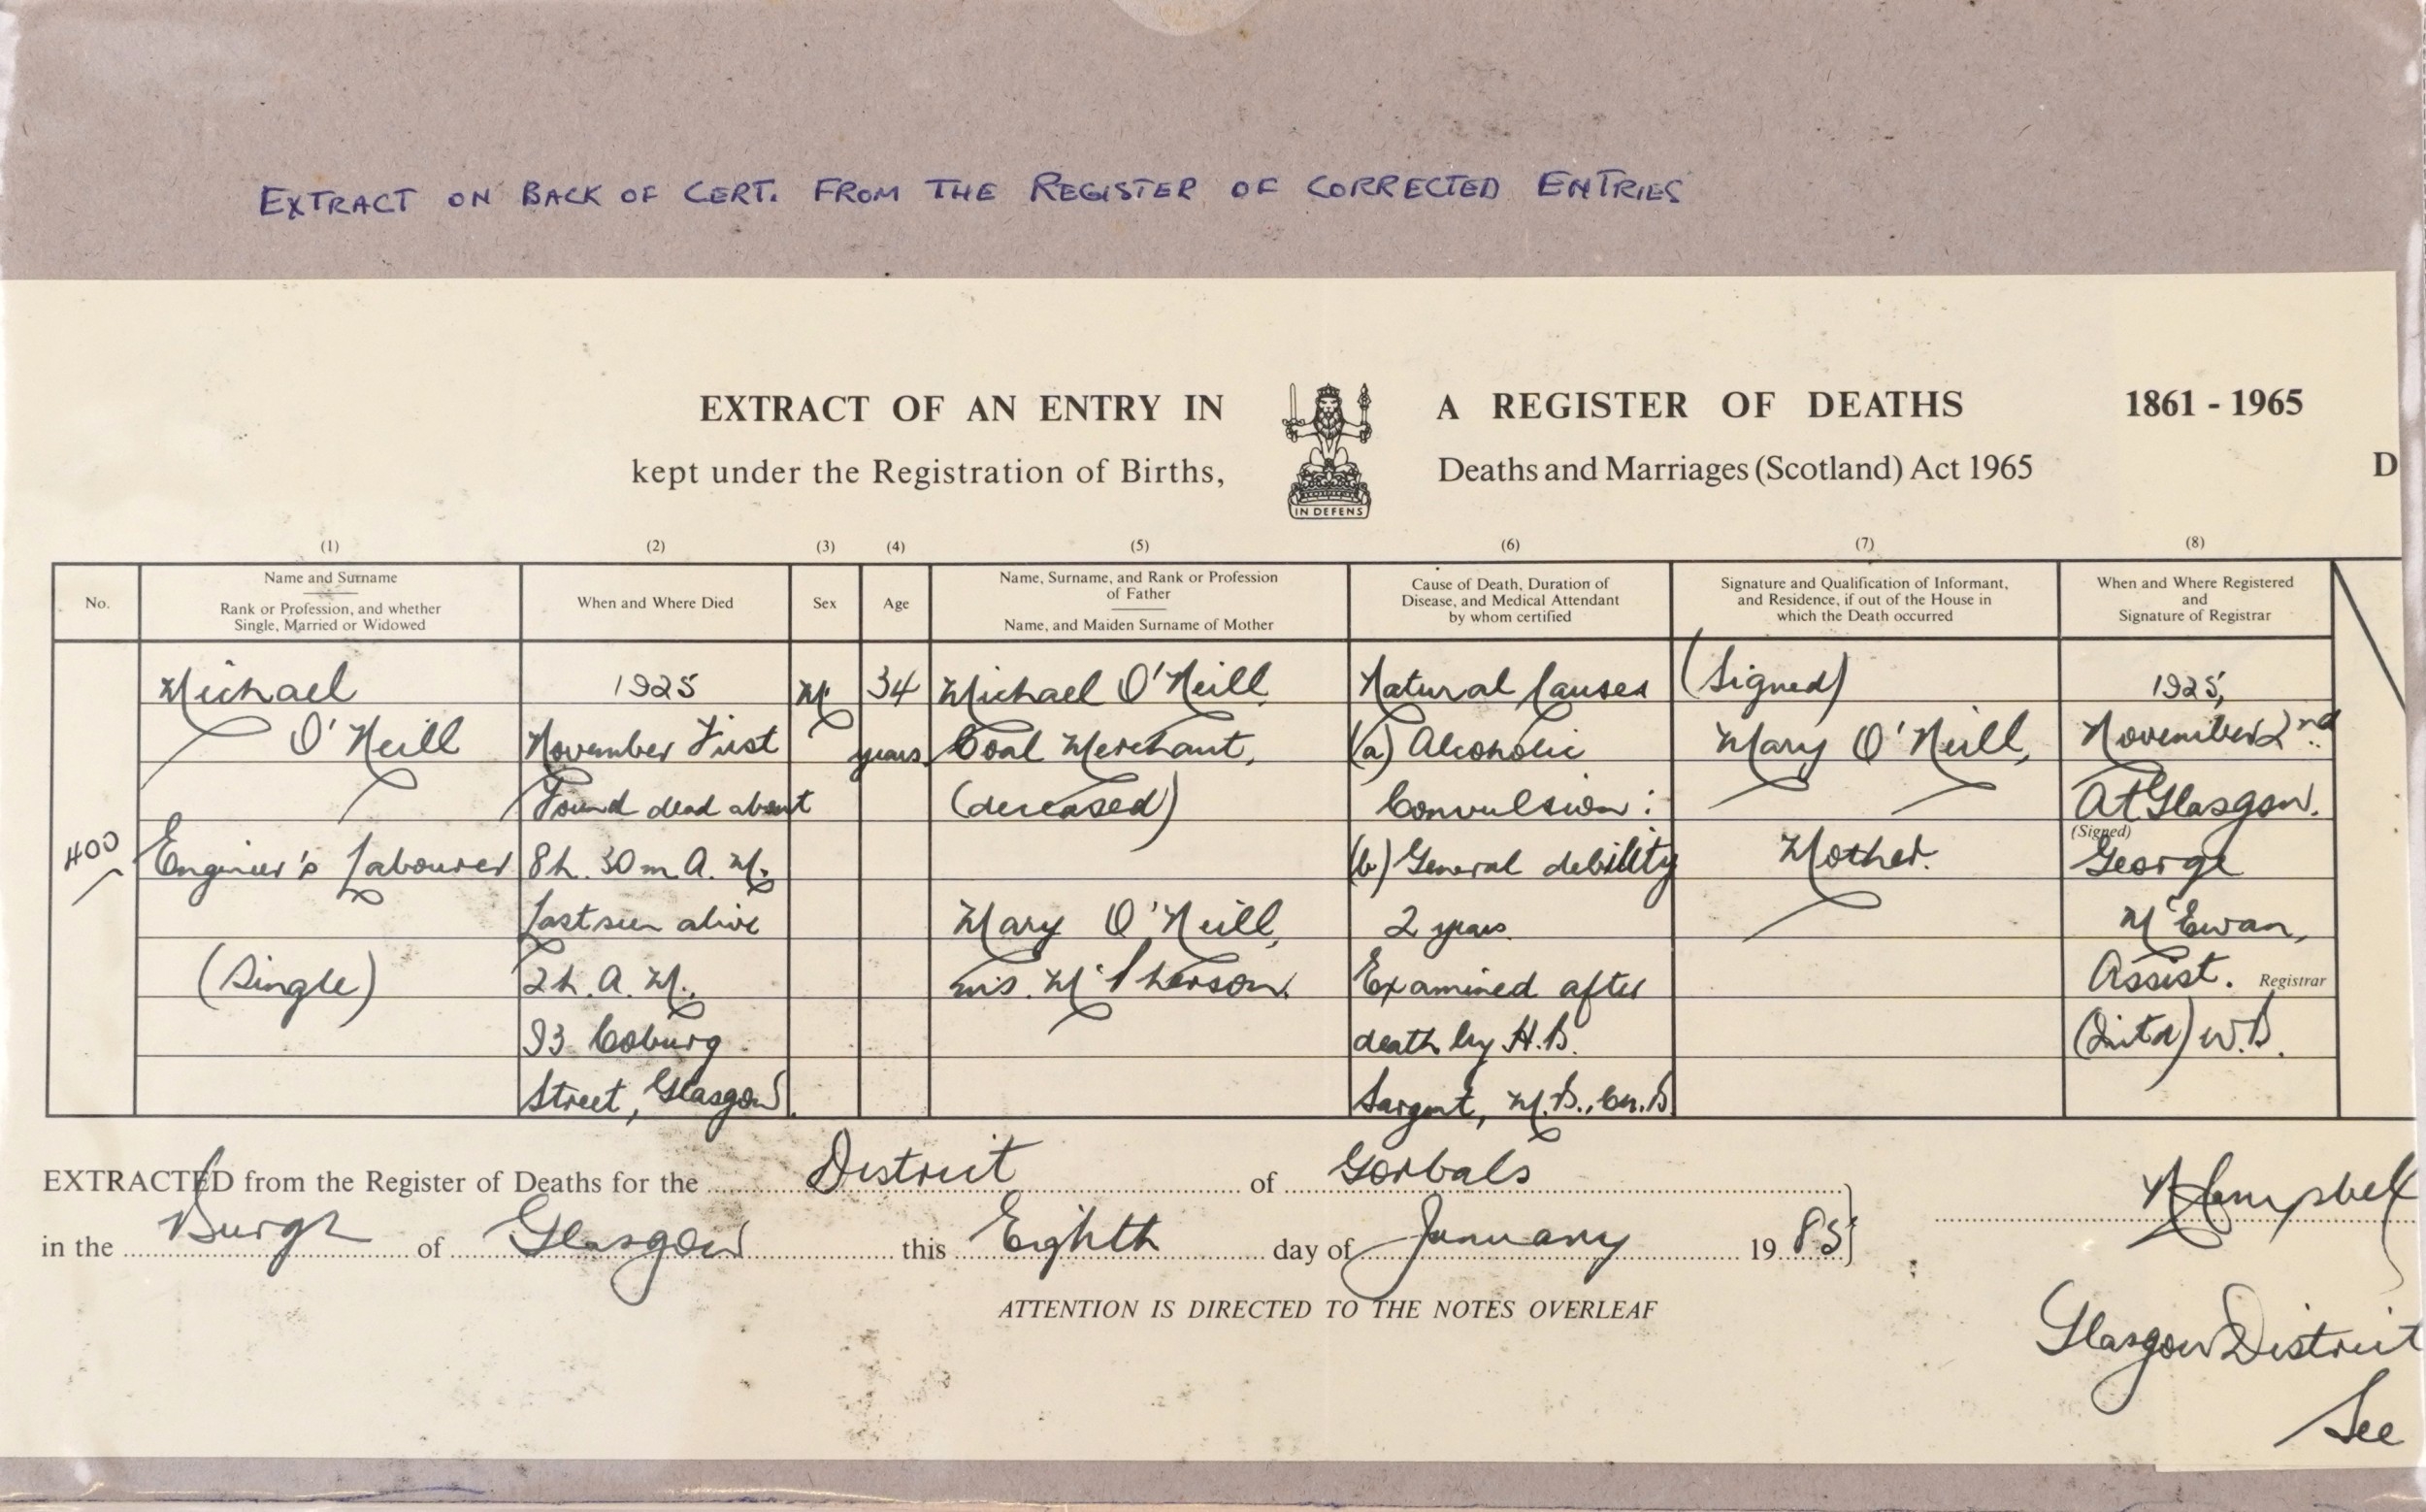 EXTRACT ON BACK OF CERT. FROM THE REGISTER OF CORRECTED ENTRIES
EXTRACT OF AN ENTRY IN A REGISTER OF DEATHS 1861 - 1965
kept under the Registration of Births, Deaths and Marriages (Scotland) Act 1965 D
IN DEFENS
(1) (2) (3) (4) (5) (6) (7) (8)
No.
Name and Surname
Rank or Profession, and whether
Single, Married or Widowed
When and Where Died
Sex
Age
Name, Surname, and Rank or Profession
of Father
Name, and Maiden Surname of Mother
Cause of Death, Duration of
Disease, and Medical Attendant
by whom certified
Signature and Qualification of Informant,
and Residence, if out of the House in
which the Death occurred
When and Where Registered
and
Signature of Registrar
400
Michael
O'Neill
Engineer's Labourer
(Single)
1925
November First
Found dead about
8h. 30m A. M.
Last seen alive
2h. A. M.
93 Coburg
Street, Glasgow
M
34
years
Michael O'Neill
Coal Merchant,
(deceased)
Mary O'Neill,
ms. McPherson.
Natural Causes
(a) Alcoholic
Convulsion:
(b) General debility
2 years
Examined after
death by H.B.
Sargent, M.B., Ch.B
(Signed)
Mary O'Neill,
Mother.
1925,
November 2nd
At Glasgow.
(Signed)
George
McEwan,
Assist. Registrar
(Intd) W.B.
EXTRACTED from the Register of Deaths for the District of Gorbals
in the Burgh of Glasgow this Eighth day of January 1985
Campbell
ATTENTION IS DIRECTED TO THE NOTES OVERLEAF
Glasgow District
See